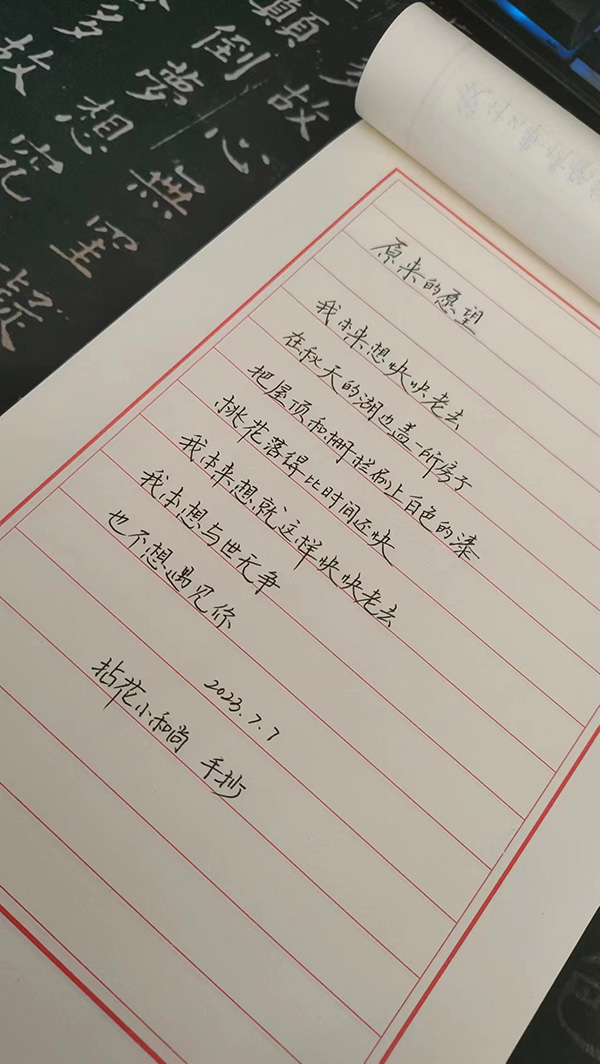 原来的愿望
我本来想快快老去
在秋天的湖边盖一所房子
把屋顶和栅栏刷上白色的漆
桃花落得比时间还快
我本来想就这样快快老去
我本想与世无争
也不想遇见你
2023.7.7
拈花小和尚 手抄
多故心無罣
顛倒夢想究
多故